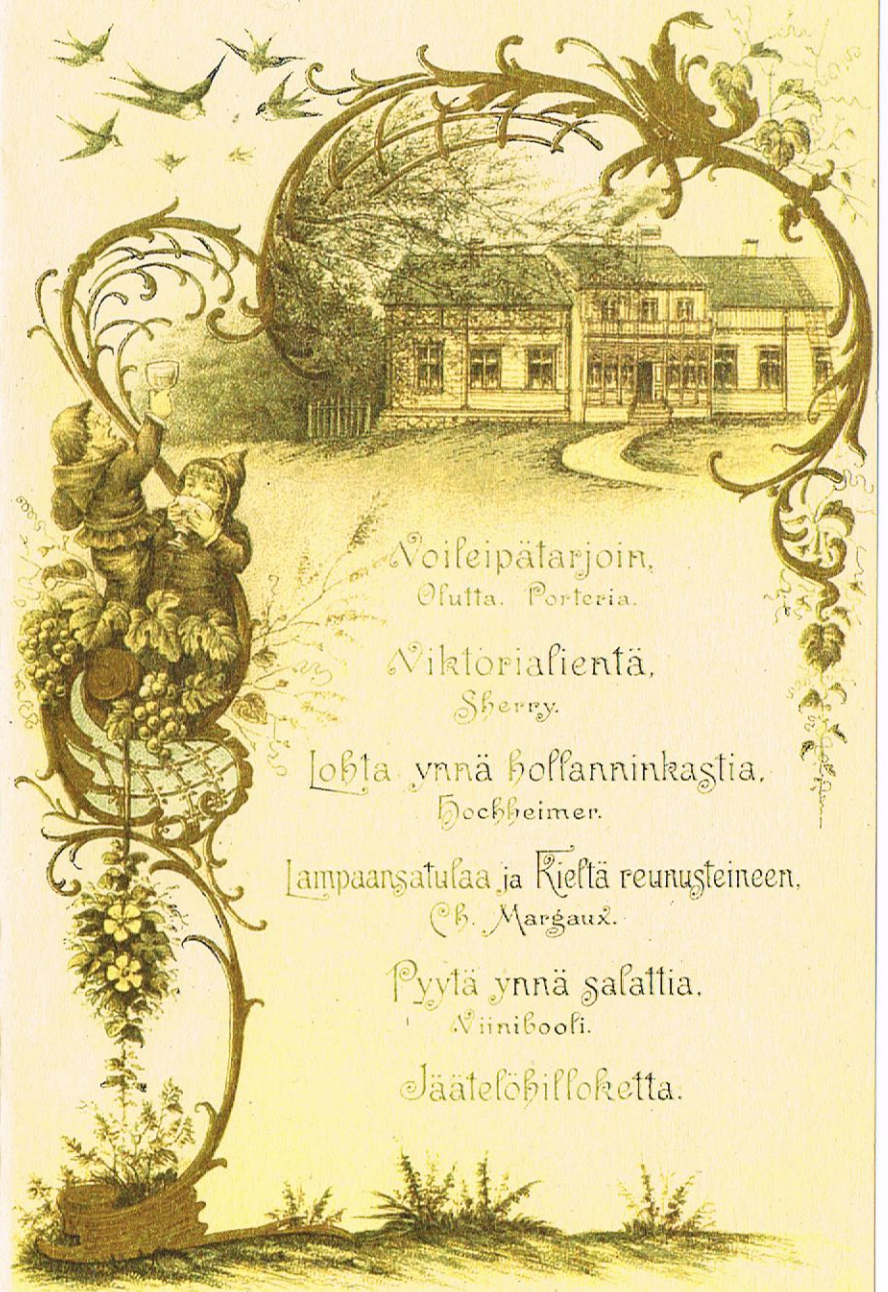 Voileipätarjoin,
Olutta. Porteria.
Viktorialientä,
Sherry.
Lohta ynnä hollanninkastia,
Hochheimer.
Lampaansatulaa ja Kieltä reunusteineen,
Ch. Margaux.
Pyytä ynnä salattia.
Viinibooli.
Jäätelöhilloketta.